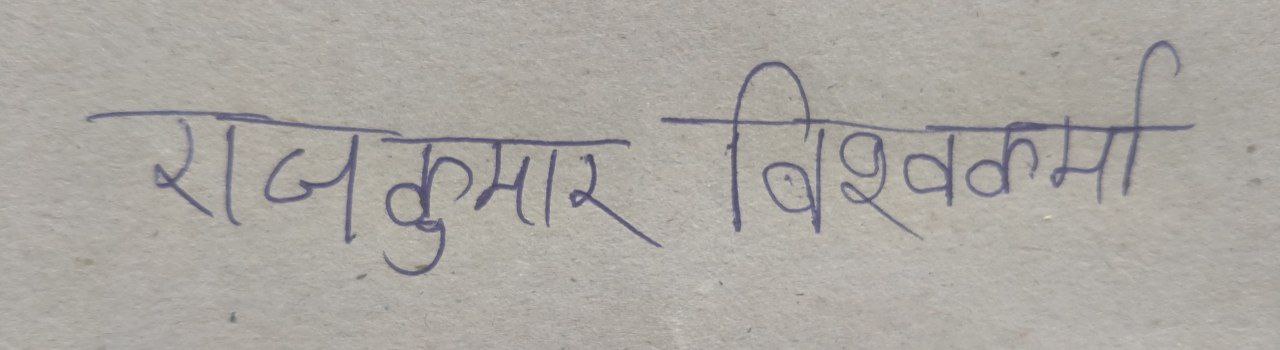 राजकुमार बिश्वकर्मा